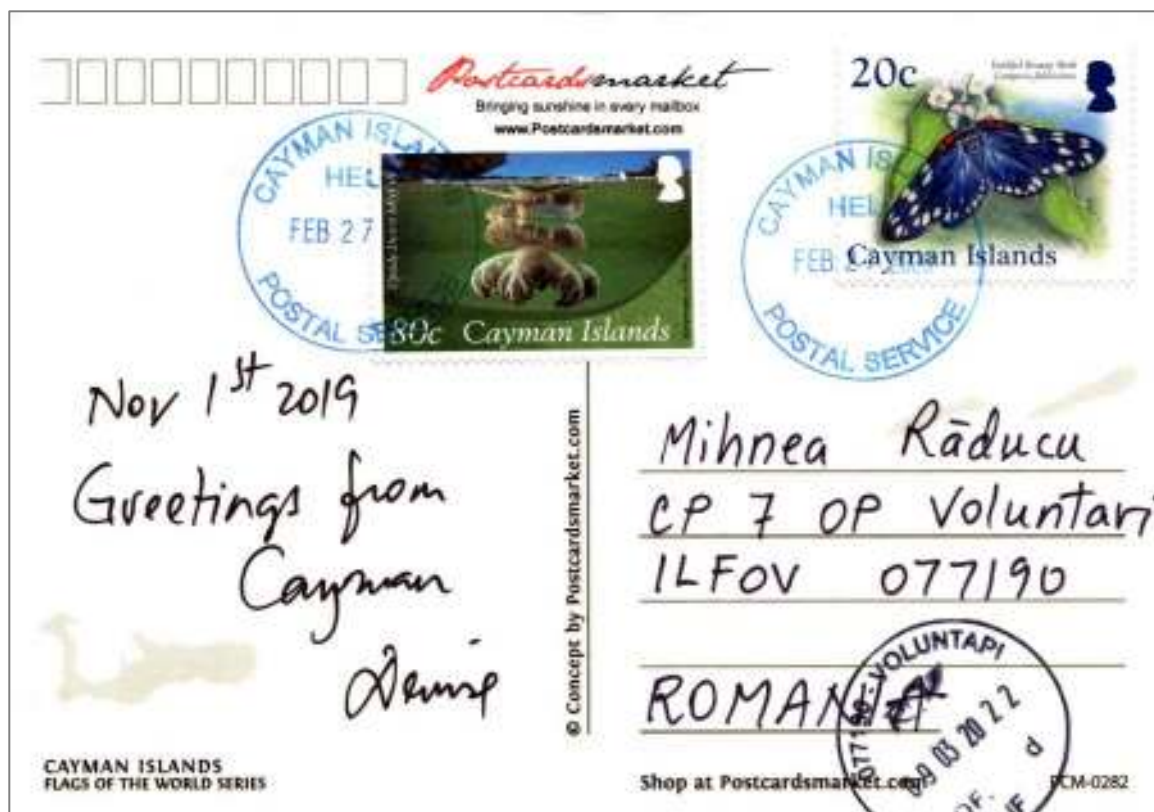 Postcardsmarket
Bringing sunshine in every mailbox
www.Postcardsmarket.com
20c
Cayman Islands
CAYMAN ISL
HEL
FEB 27
POSTAL SE
80c Cayman Islands
CAYMAN IS
HEL
FEB 2
POSTAL SERVICE
Nov 1st 2019
Greetings from
Cayman
Denise
© Concept by Postcardsmarket.com
Mihnea Răducu
CP 7 OP Voluntari
ILFOV 077190
ROMANIA
077190-VOLUNTARI
09 03 20 22
d
OF.
CAYMAN ISLANDS
FLAGS OF THE WORLD SERIES
Shop at Postcardsmarket.com
PCM-0282